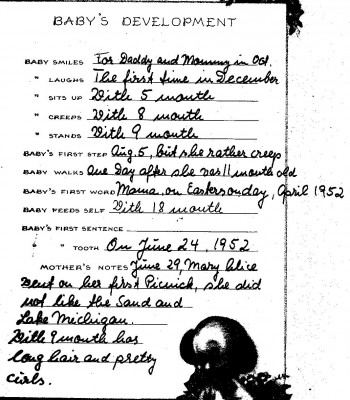 BABY'S DEVELOPMENT
BABY SMILES For Daddy and Mommy in Oct.
" LAUGHS The first time in December
" SITS UP With 5 month
" CREEPS With 8 month
" STANDS With 9 month
BABY'S FIRST STEP Aug. 5, but she rather creep
BABY WALKS One Day after she was 11 month old
BABY'S FIRST WORD Mama, on Eastersonday, April 1952
BABY FEEDS SELF With 18 month
BABY'S FIRST SENTENCE
" " TOOTH On June 24, 1952
MOTHER'S NOTES June 29, Mary Alice
Went on her first Picnick, she did
not like the Sand and
Lake Michigan.
With 9 month has
long hair and pretty
curls.